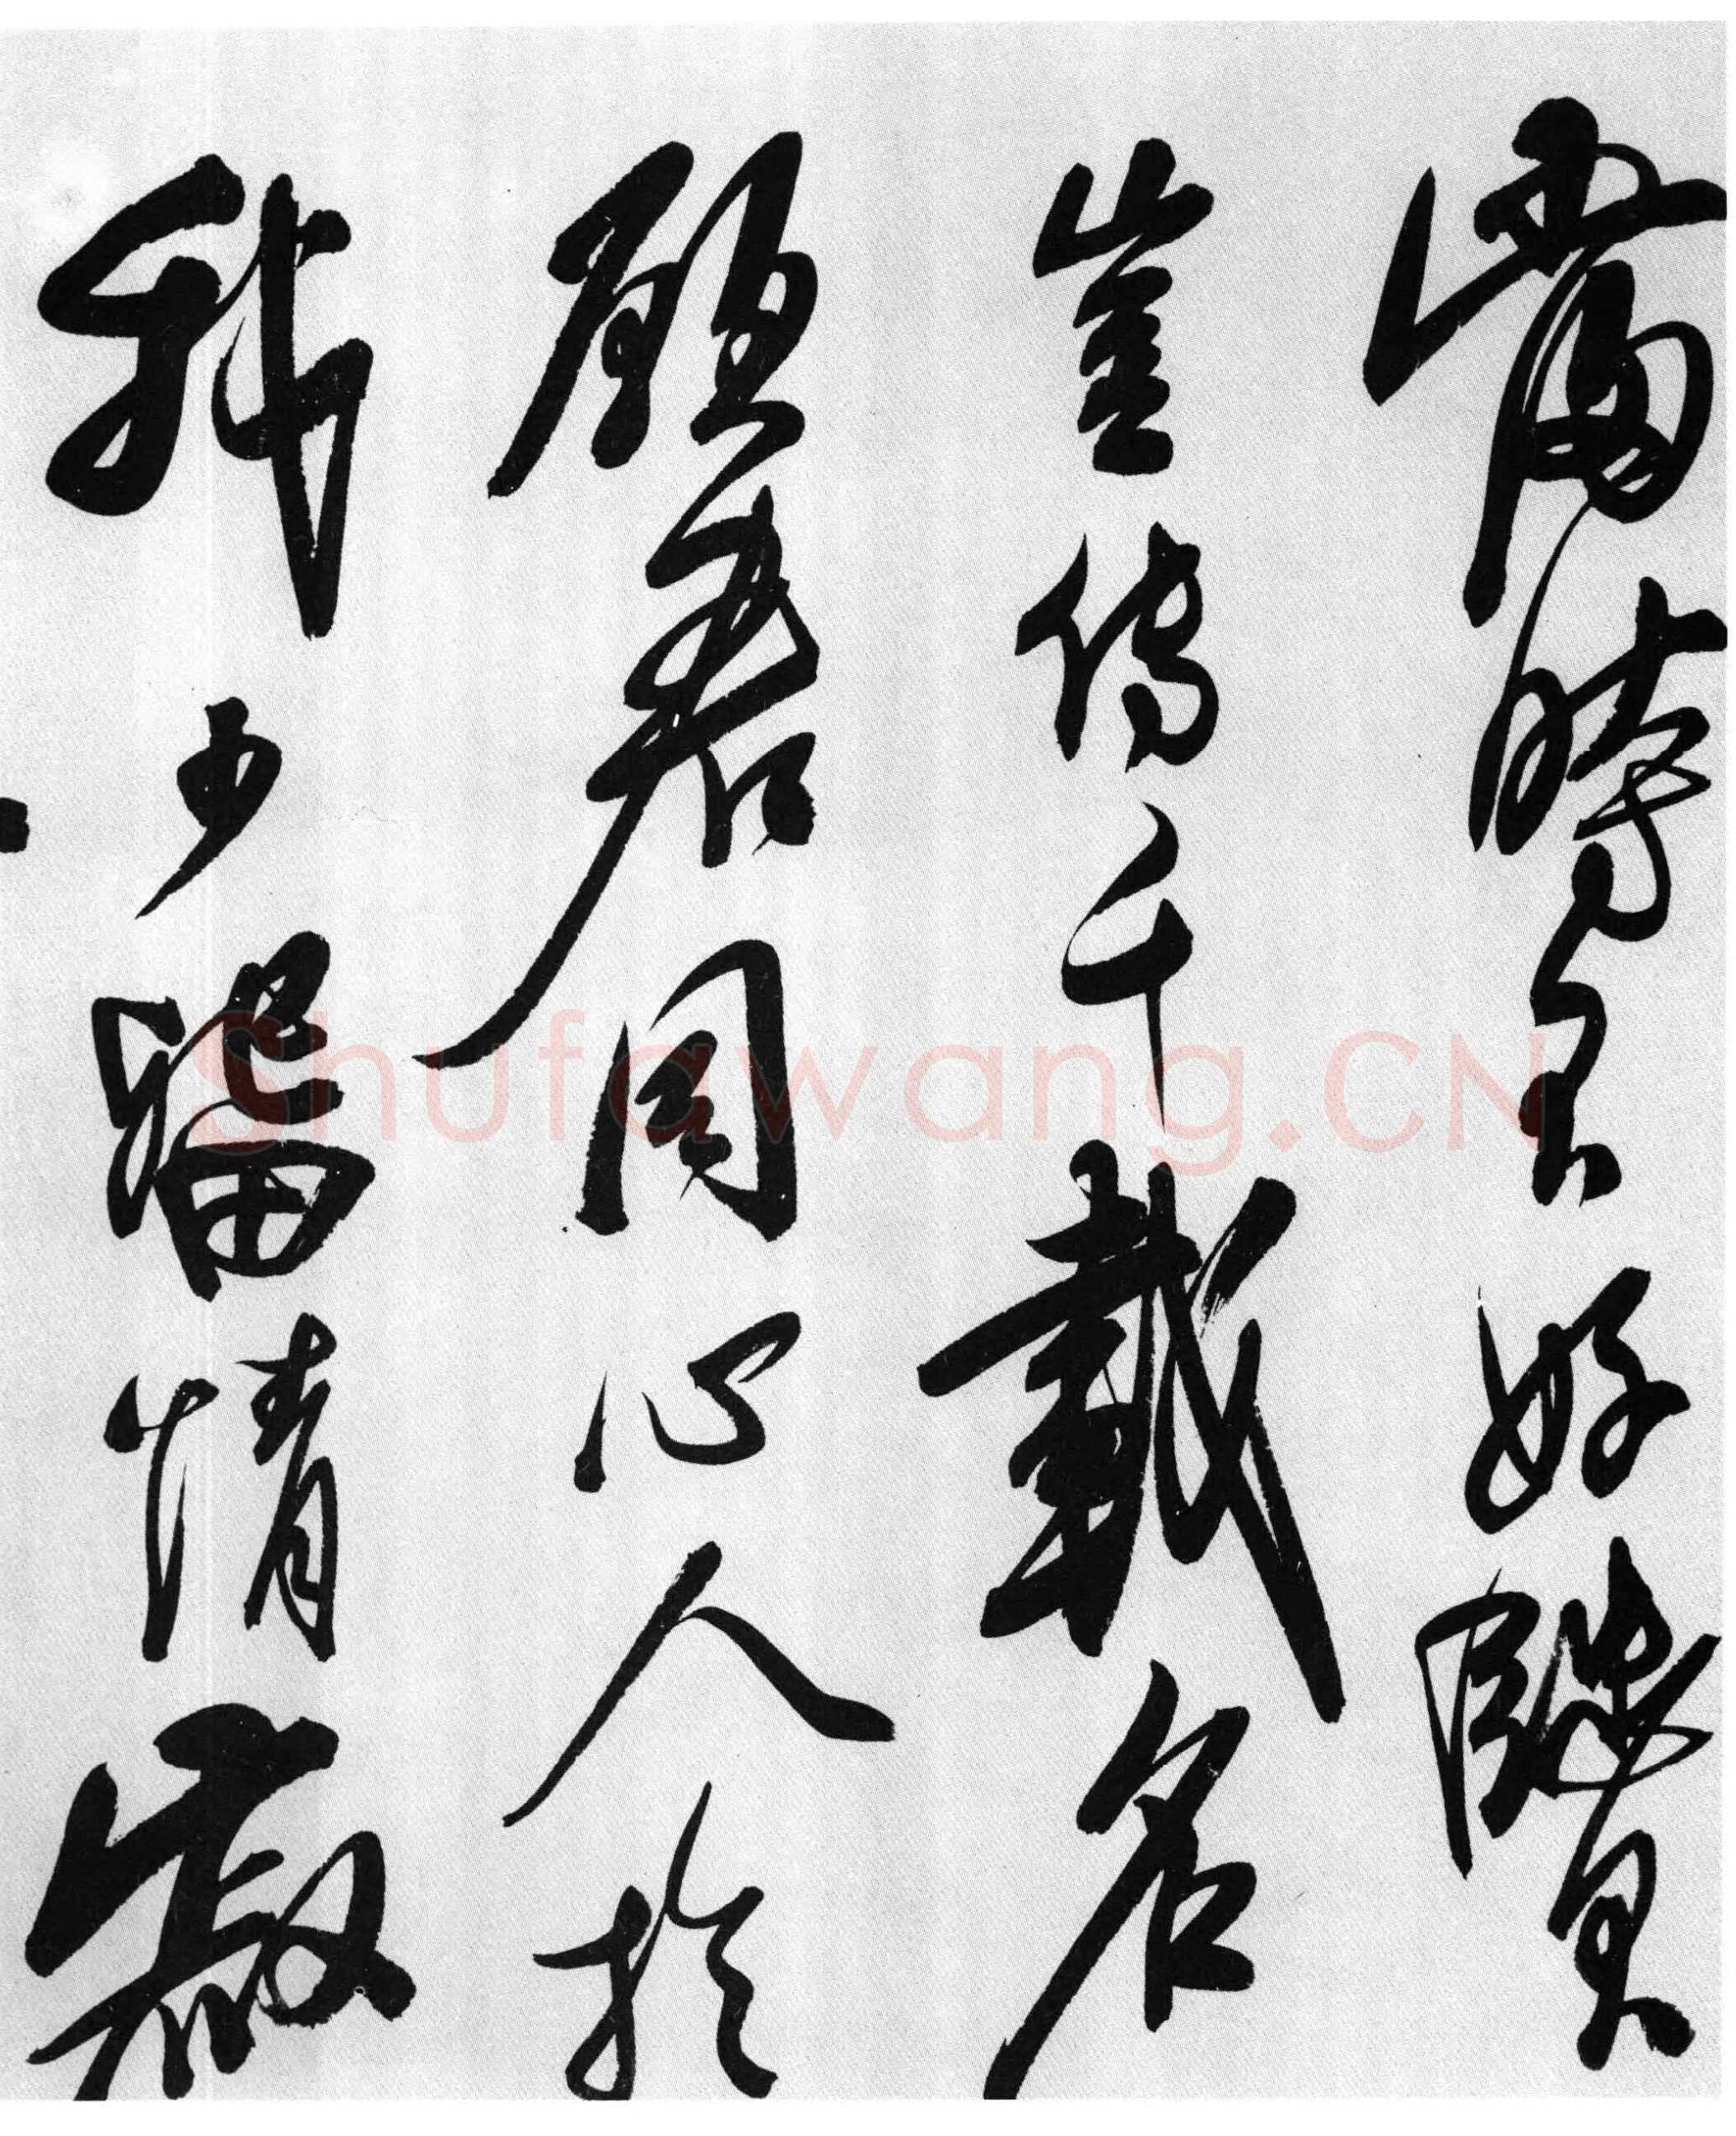 當時不好賢
豈傳千載名
願君同心人於
我少留情寂
Shufawang.CN